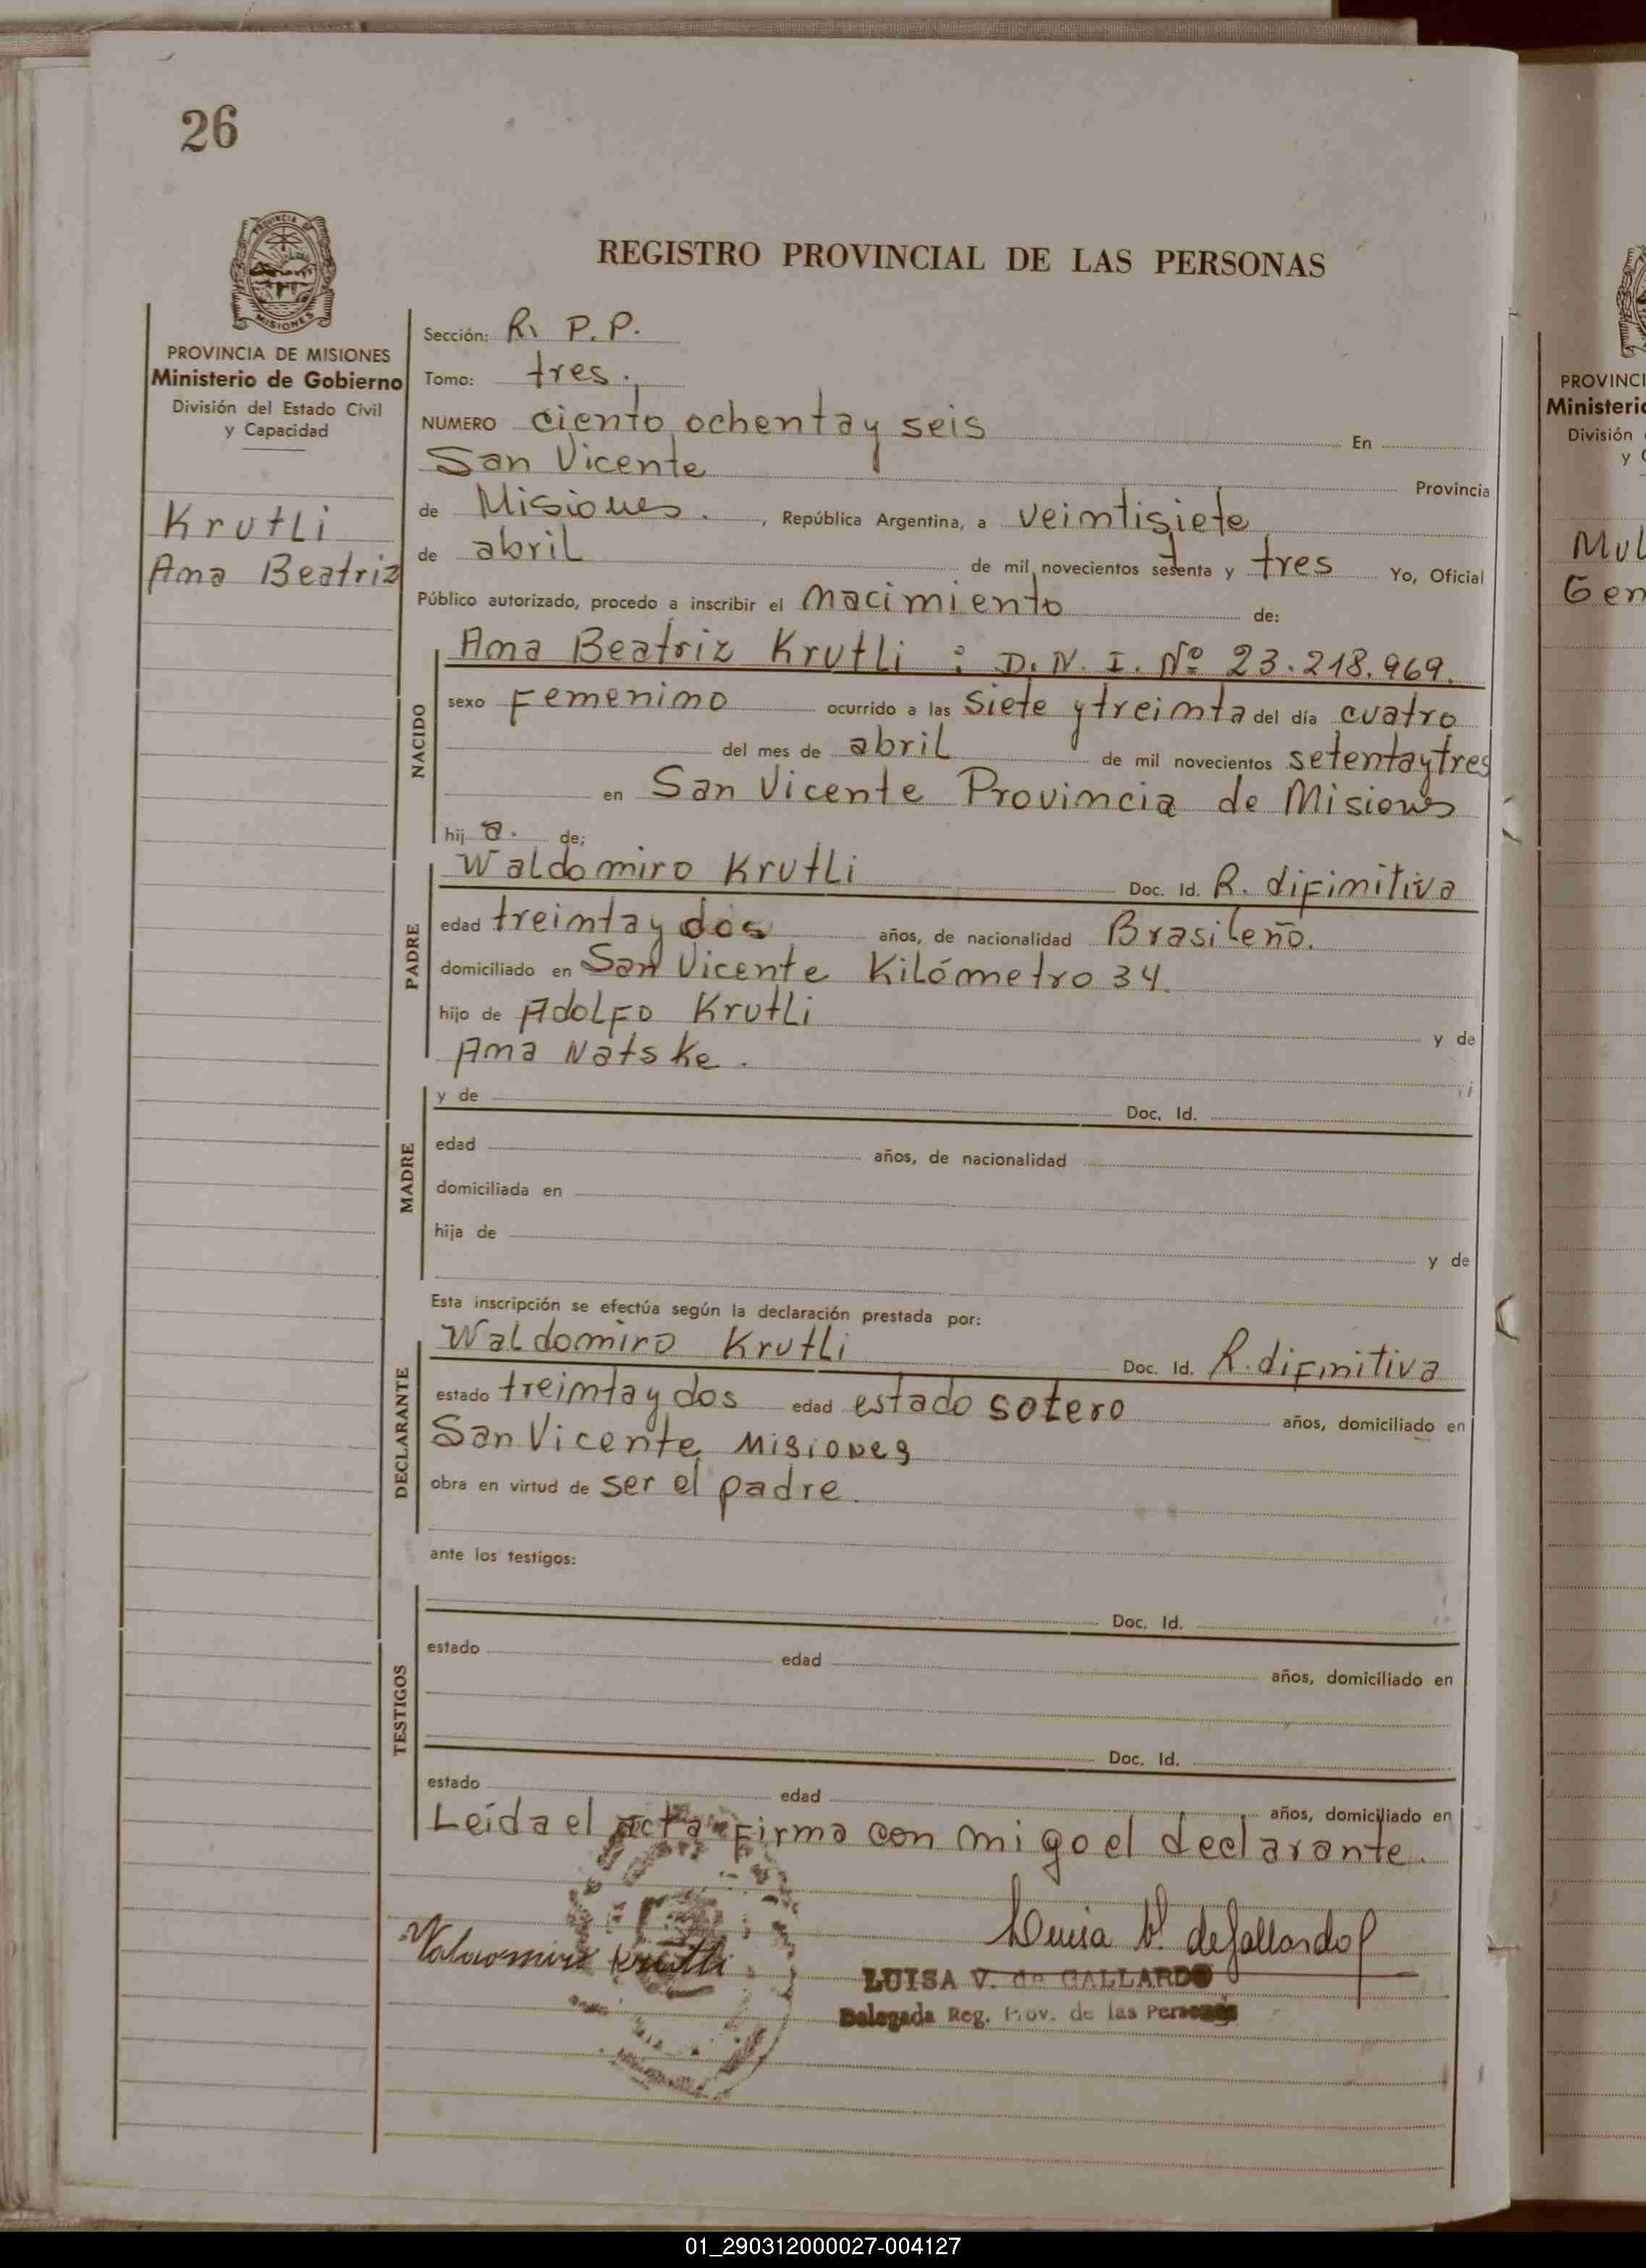 26
PROVINCIA DE
MISIONES
PROVINCIA DE MISIONES
Ministerio de Gobierno
División del Estado Civil
y Capacidad
Krutli
Ana Beatriz
REGISTRO PROVINCIAL DE LAS PERSONAS
Sección: R. P. P.
Tomo: tres.
NUMERO ciento ochenta y seis En
San Vicente Provincia
de Misiones. , República Argentina, a veintisiete
de abril de mil novecientos setenta y tres Yo, Oficial
Público autorizado, procedo a inscribir el nacimiento de:
NACIDO
Ana Beatriz Krutli : D. N. I. Nº 23.218.969.
sexo Femenino ocurrido a las siete y treinta del día cuatro
del mes de abril de mil novecientos setenta y tres
en San Vicente Provincia de Misiones
hij a. de;
PADRE
Waldomiro Krutli Doc. Id. R. difinitiva
edad treinta y dos años, de nacionalidad Brasileño.
domiciliado en San Vicente Kilómetro 34.
hijo de Adolfo Krutli y de
Ana Natske.
MADRE
y de Doc. Id.
edad años, de nacionalidad
domiciliada en
hija de y de
Esta inscripción se efectúa según la declaración prestada por:
DECLARANTE
Waldomiro Krutli Doc. Id. R. difinitiva
estado treinta y dos edad estado sotero años, domiciliado en
San Vicente Misiones
obra en virtud de ser el padre.
ante los testigos:
TESTIGOS
Doc. Id.
estado edad años, domiciliado en
Doc. Id.
estado edad años, domiciliado en
Leída el acta firma con migo el declarante.
Krutli
Luisa V. de Gallardo
LUISA V. de GALLARDO
Delegada Reg. Prov. de las Personas
PROVINCI
Ministeri
División
y
Mul
Gen
01_290312000027-004127